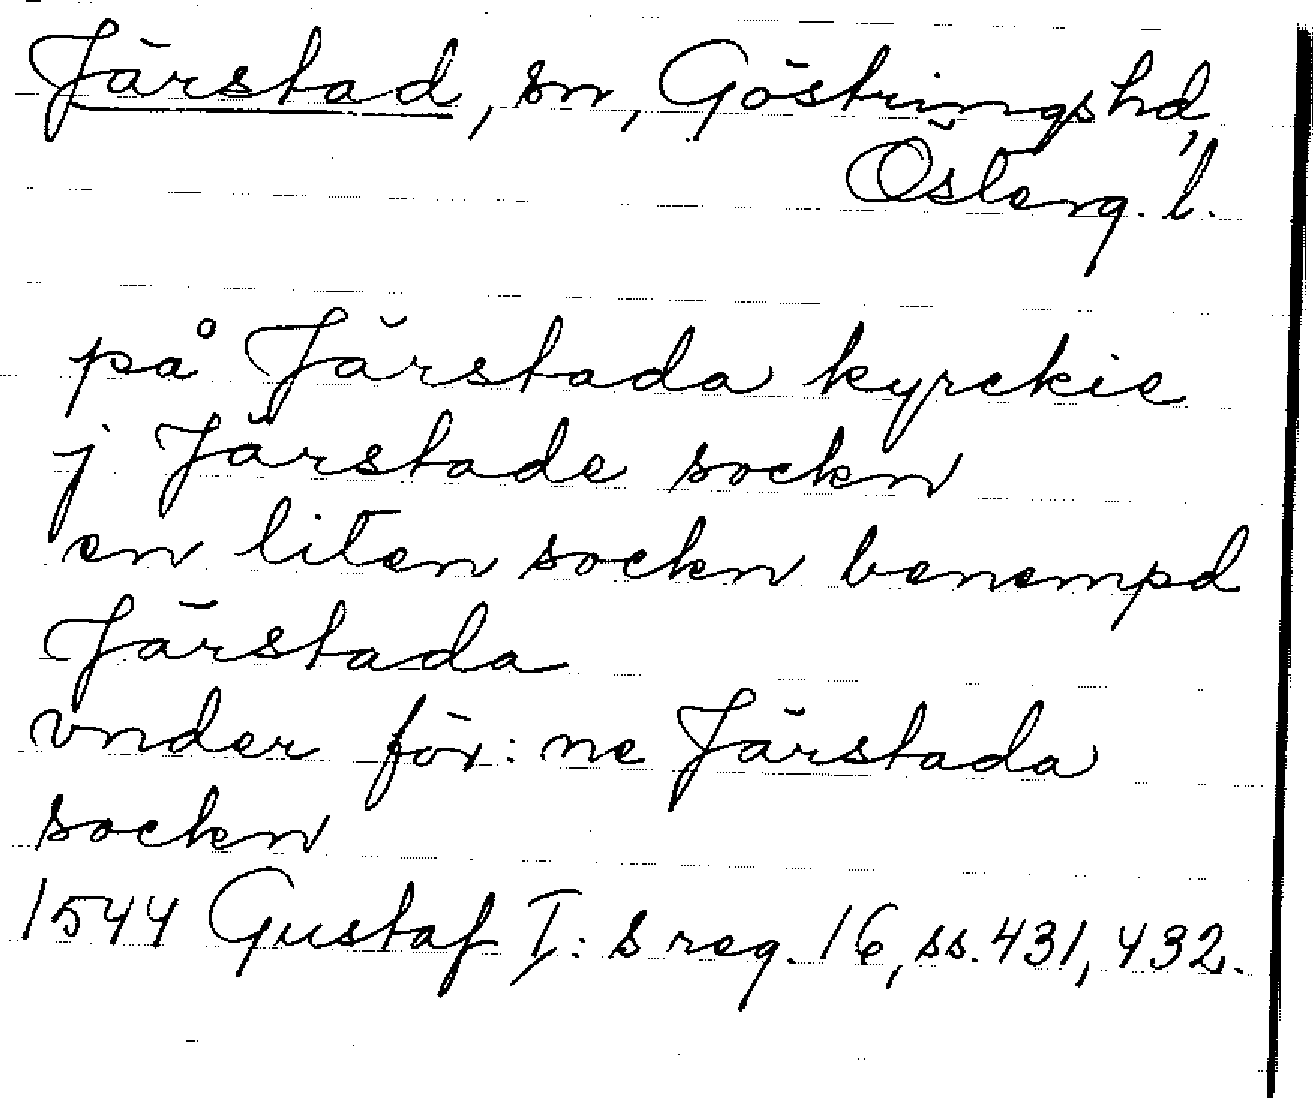 Järstad, sn, Göstrings hd,
Österg. l.
på Järstada kyrckie
j Järstade sockn
en liten sockn benempd
Järstada
vnder för:ne Järstada
sockn
1544 Gustaf I:s reg. 16, ss. 431, 432.